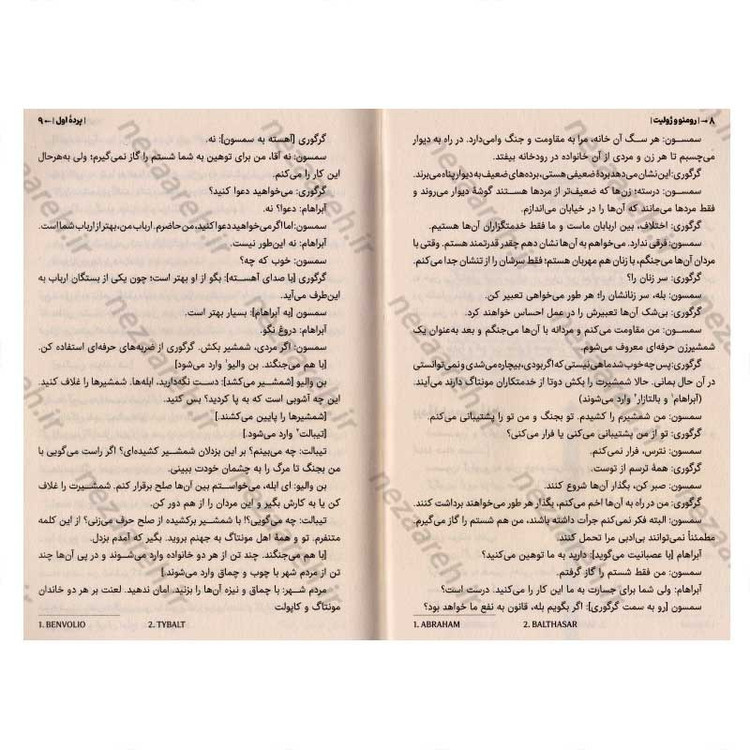 ۸ → | رومئو و ژولیت |
سمسون: هر سگ آن خانه، مرا به مقاومت و جنگ وامی‌دارد. در راه به دیوار
می‌چسبم تا هر زن و مردی از آن خانواده در رودخانه بیفتد.
گرگوری: این نشان می‌دهد بردهٔ ضعیفی هستی، برده‌های ضعیف به دیوار پناه می‌برند.
سمسون: درسته؛ زن‌ها که ضعیف‌تر از مردها هستند گوشهٔ دیوار می‌روند و
فقط مردها می‌مانند که آن‌ها را در خیابان می‌اندازم.
گرگوری: اختلاف، بین اربابان ماست و ما فقط خدمتگزاران آن‌ها هستیم.
سمسون: فرقی ندارد. می‌خواهم به آن‌ها نشان دهم چقدر قدرتمند هستم. وقتی با
مردان آن‌ها می‌جنگم، با زنان هم مهربان هستم؛ فقط سرشان را از تنشان جدا می‌کنم.
گرگوری: سر زنان را؟
سمسون: بله، سر زنانشان را؛ هر طور می‌خواهی تعبیر کن.
گرگوری: بی‌شک آن‌ها تعبیرش را در عمل احساس خواهند کرد.
سمسون: من مقاومت می‌کنم و مردانه با آن‌ها می‌جنگم و بعد به‌عنوان یک
شمشیرزن حرفه‌ای معروف می‌شوم.
گرگوری: پس چه خوب شد ماهی نیستی که اگر بودی، بیچاره می‌شدی و نمی‌توانستی
در آن حال بمانی. حالا شمشیرت را بکش دوتا از خدمتکاران مونتاگ دارند می‌آیند.
(آبراهام۱ و بالتازار۲ وارد می‌شوند)
سمسون: من شمشیرم را کشیدم. تو بجنگ و من تو را پشتیبانی می‌کنم.
گرگوری: تو از من پشتیبانی می‌کنی یا فرار می‌کنی؟
سمسون: نترس، فرار نمی‌کنم.
گرگوری: همهٔ ترسم از توست.
سمسون: صبر کن، بگذار آن‌ها شروع کنند.
گرگوری: من در راه به آن‌ها اخم می‌کنم، بگذار هر طور می‌خواهند برداشت کنند.
سمسون: البته فکر نمی‌کنم جرأت داشته باشند، من هم شستم را گاز می‌گیرم.
مطمئناً نمی‌توانند بی‌ادبی مرا تحمل کنند.
آبراهام [با عصبانیت می‌گوید]: دارید به ما توهین می‌کنید؟
سمسون: من فقط شستم را گاز گرفتم.
آبراهام: ولی شما برای جسارت به ما این کار را می‌کنید. درست است؟
سمسون [رو به سمت گرگوری]: اگر بگویم بله، قانون به نفع ما خواهد بود؟
1. ABRAHAM 2. BALTHASAR
| پردهٔ اول | ← ۹
گرگوری [آهسته به سمسون]: نه.
سمسون: نه آقا، من برای توهین به شما شستم را گاز نمی‌گیرم؛ ولی به‌هرحال
این کار را می‌کنم.
گرگوری: می‌خواهید دعوا کنید؟
آبراهام: دعوا؟ نه.
سمسون: اما اگر می‌خواهید دعوا کنید، من حاضرم. ارباب من، بهتر از ارباب شما است.
آبراهام: نه این‌طور نیست.
سمسون: خوب که چه؟
گرگوری [با صدای آهسته]: بگو از او بهتر است؛ چون یکی از بستگان ارباب به
این‌طرف می‌آید.
سمسون [به آبراهام]: بسیار بهتر است.
آبراهام: دروغ نگو.
سمسون: اگر مردی، شمشیر بکش. گرگوری از ضربه‌های حرفه‌ای استفاده کن.
[با هم می‌جنگند. بن والیو۱ وارد می‌شود]
بن والیو [شمشیر می‌کشد]: دست نگه‌دارید، ابله‌ها. شمشیرها را غلاف کنید.
این چه آشوبی است که به پا کردید؟ بس کنید.
[شمشیرها را پایین می‌کشند.]
[تیبالت۲ وارد می‌شود.]
تیبالت: چه می‌بینم؟ بر این بزدلان شمشیر کشیده‌ای؟ اگر راست می‌گویی با
من بجنگ تا مرگ را به چشمان خودت ببینی.
بن والیو: ای ابله، می‌خواستم بین آن‌ها صلح برقرار کنم. شمشیرت را غلاف
کن یا به کارش بگیر و این مردان را از هم دور کن.
تیبالت: چه می‌گویی؟! با شمشیر برکشیده از صلح حرف می‌زنی؟ از این کلمه
متنفرم. تو و همهٔ اهل مونتاگ به جهنم بروید. بگیر که آمدم بزدل.
[با هم می‌جنگند. چند تن از هر دو خانواده وارد می‌شوند و در پی آن‌ها چند
تن از مردم شهر با چوب و چماق وارد می‌شوند.]
مردم شهر: با چماق و نیزه آن‌ها را بزنید. امان ندهید. لعنت بر هر دو خاندان
مونتاگ و کاپولت
1. BENVOLIO 2. TYBALT
nezaareh.ir